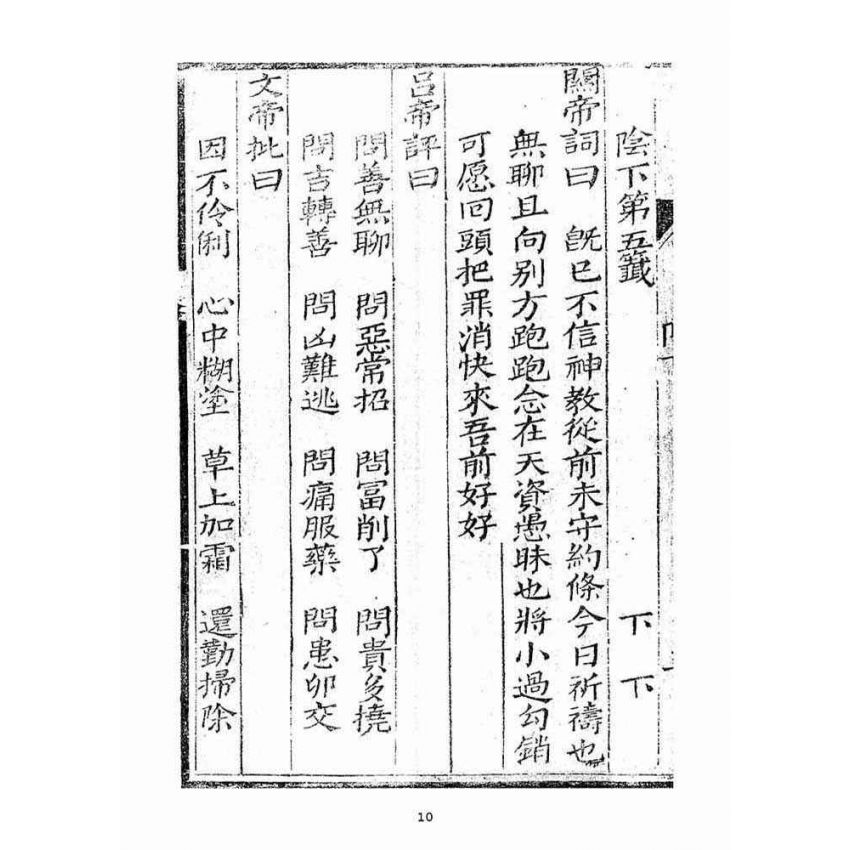 陰下第五籤 下下
關帝詞曰 旣已不信神教從前未守約條今日祈禱也
無聊且向别方跑跑念在天資愚昧也將小過勾銷
可愿回頭把罪消快來吾前好好
呂帝評曰
問善無聊 問惡常招 問富削了 問貴多撓
問吉轉善 問凶難逃 問痛服藥 問患卯交
文帝批曰
因不伶俐 心中糊塗 草上加霜 還勤掃除
10